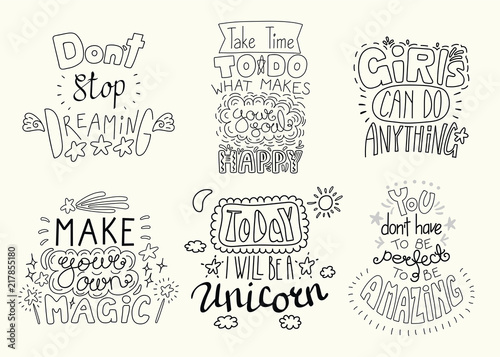 Don't
Stop
DREAMING
Take Time
TO DO
WHAT MAKES
your soul
HAPPY
GIRLS
CAN DO
ANYTHING
MAKE
your
own
MAGIC
TODAY
I WILL BE A
Unicorn
YOU
don't have
TO BE
perfect
TO BE
AMAZING
Adobe Stock | #217855180